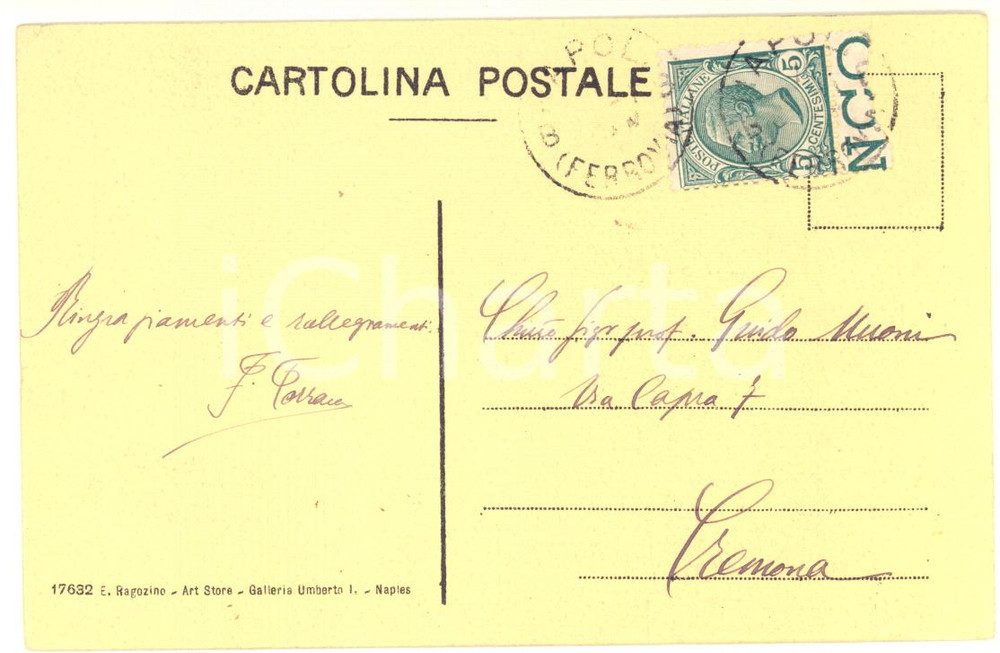 CARTOLINA POSTALE
POSTE ITALIANE
CENTESIMI
5
5
NAPOLI
(FERROVIA)
Ringraziamenti e rallegramenti.
F. Torraca
Chmo Sigr prof. Guido Muoni
Via Capra 7
Cremona
iCharta
17632 E. Ragozino - Art Store - Galleria Umberto I. - Naples